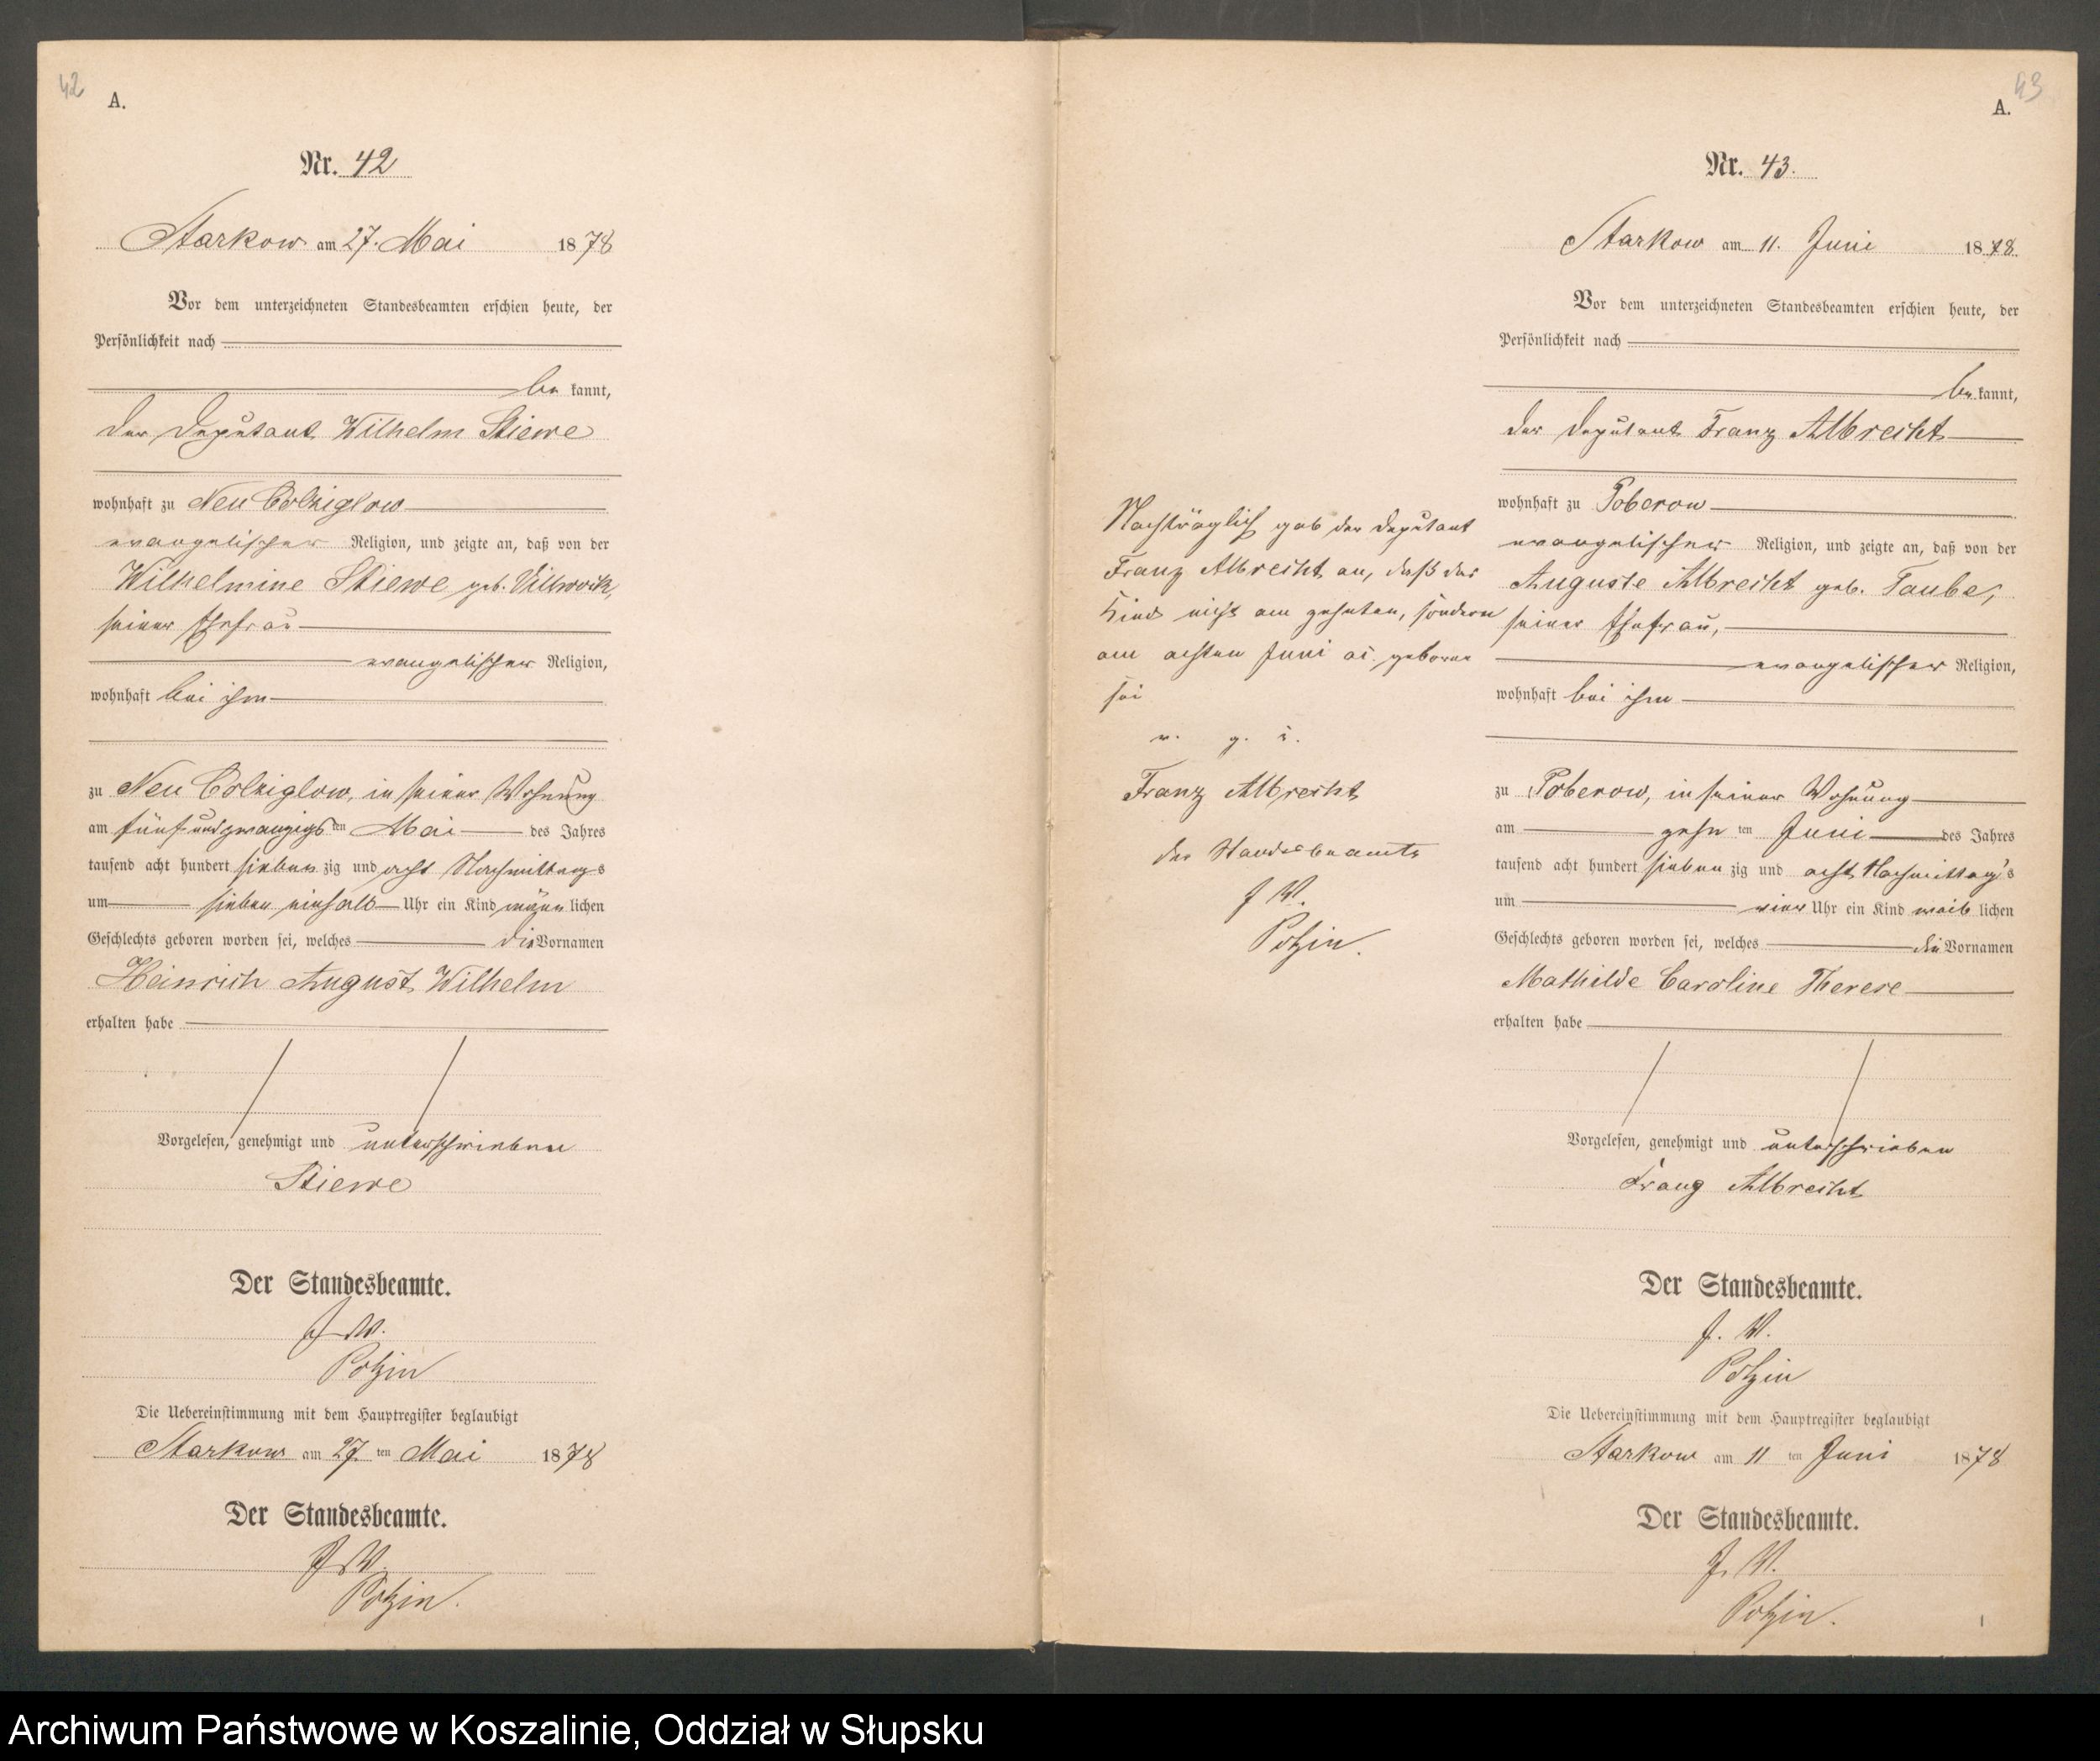 42
A.
Nr. 42
Starkow am 27. Mai 1878
Vor dem unterzeichneten Standesbeamten erschien heute, der
Persönlichkeit nach
be kannt,
der Deputant Wilhelm Stiewe
wohnhaft zu Neu Colziglow
evangelischer Religion, und zeigte an, daß von der
Wilhelmine Stiewe geb.
seiner Ehefrau
evangelischer Religion,
wohnhaft bei ihm
zu Neu Colziglow, in seiner Wohnung
am fünfundzwanzigs ten Mai des Jahres
tausend acht hundert sieben zig und acht Nachmittags
um sieben einhalb Uhr ein Kind männ lichen
Geschlechts geboren worden sei, welches die Vornamen
Heinrich August Wilhelm
erhalten habe
Vorgelesen, genehmigt und unterschrieben
Stiewe
Der Standesbeamte.
J. V.
Potzin
Die Uebereinstimmung mit dem Hauptregister beglaubigt
Starkow am 27 ten Mai 1878
Der Standesbeamte.
J. V.
Potzin.
43
A.
Nr. 43.
Starkow am 11. Juni 1878.
Vor dem unterzeichneten Standesbeamten erschien heute, der
Persönlichkeit nach
be kannt,
der Deputant Franz Albrecht
wohnhaft zu Poberow
evangelischer Religion, und zeigte an, daß von der
Auguste Albrecht geb. Taube,
seiner Ehefrau,
evangelischer Religion,
wohnhaft bei ihm
zu Poberow, in seiner Wohnung
am zehn ten Juni des Jahres
tausend acht hundert sieben zig und acht Nachmittag's
um vier Uhr ein Kind weib lichen
Geschlechts geboren worden sei, welches die Vornamen
Mathilde Caroline Therese
erhalten habe
Vorgelesen, genehmigt und unterschrieben
Franz Albrecht
Der Standesbeamte.
J. V.
Potzin
Die Uebereinstimmung mit dem Hauptregister beglaubigt
Starkow am 11 ten Juni 1878
Der Standesbeamte.
J. V.
Potzin.
Nachträglich gab der Deputant
Franz Albrecht an, daß das
Kind nicht am zehnten, sondern
am achten Juni geboren
sei
v. g. u.
Franz Albrecht
der Standesbeamte
J V.
Potzin.
Archiwum Państwowe w Koszalinie, Oddział w Słupsku